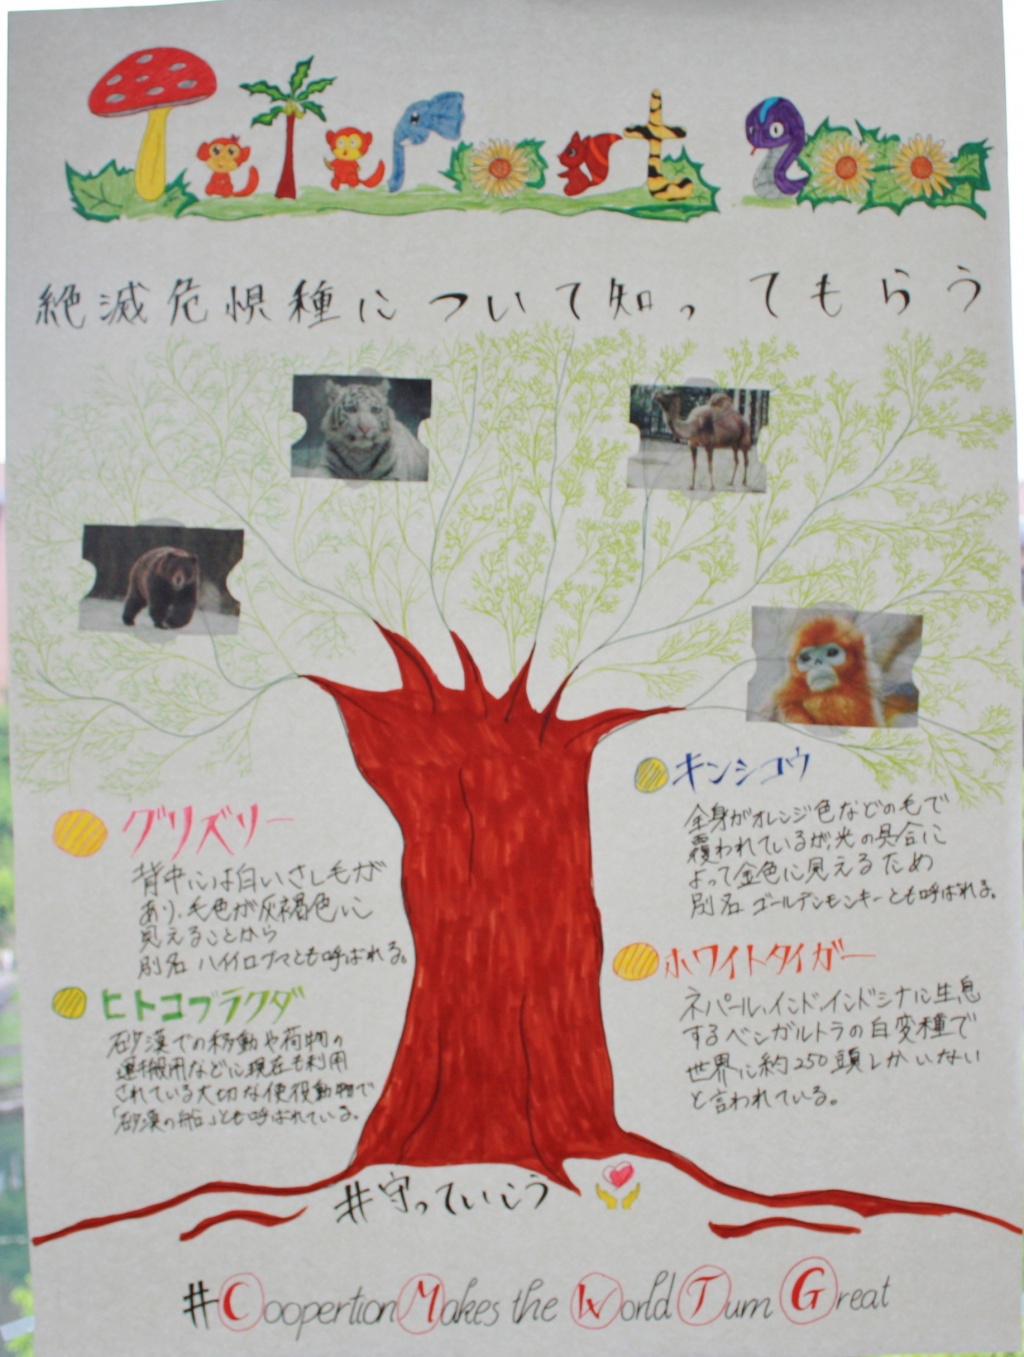 絶滅危惧種について知ってもらう
キンシコウ
全身がオレンジ色などの毛で
覆われているが、光の具合に
よって金色に見えるため
別名 ゴールデンモンキーとも呼ばれる。
グリズリー
背中には白いさし毛が
あり、毛色が灰褐色に
見えることから
別名 ハイイログマとも呼ばれる。
ホワイトタイガー
ネパール、インド、インドシナに生息
するベンガルトラの白変種で
世界に約250頭しかいない
と言われている。
ヒトコブラクダ
砂漠での移動や荷物の
運搬用などに現在も利用
されている大切な使役動物で
「砂漠の船」とも呼ばれている。
#守っていこう
#Coopertion Makes the World Turn Great